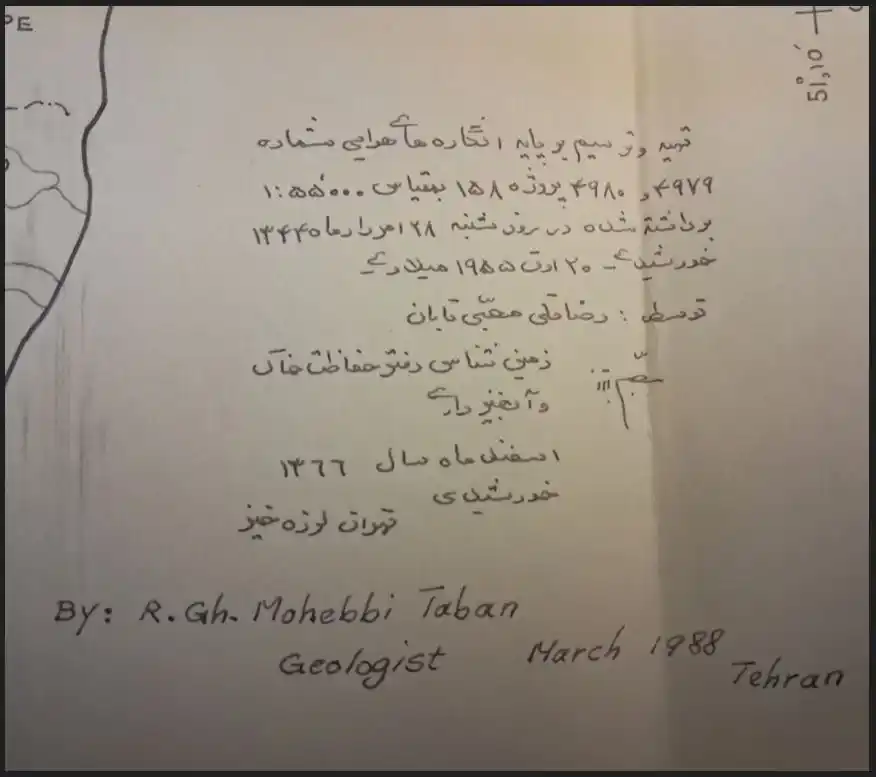 PE
51°,10'
تهیه و ترسیم بر پایه انگاره های هوایی شماره
۴۹۷۹ و ۴۹۸۰ پروژه ۱۵۸ بمقیاس ۱:۵۵٬۰۰۰
برداشته شده در روز شنبه ۲۸ امرداد ماه ۱۳۳۴
خورشیدی - ۲۰ اوت ۱۹۵۵ میلادی
توسط : رضاقلی محبّی تابان
زمین شناس دفتر حفاظت خاک
و آبخیزداری
اسفند ماه سال ۱۳۶۶
خورشیدی
تهران لرزه خیز
By: R. Gh. Mohebbi Taban
Geologist March 1988
Tehran